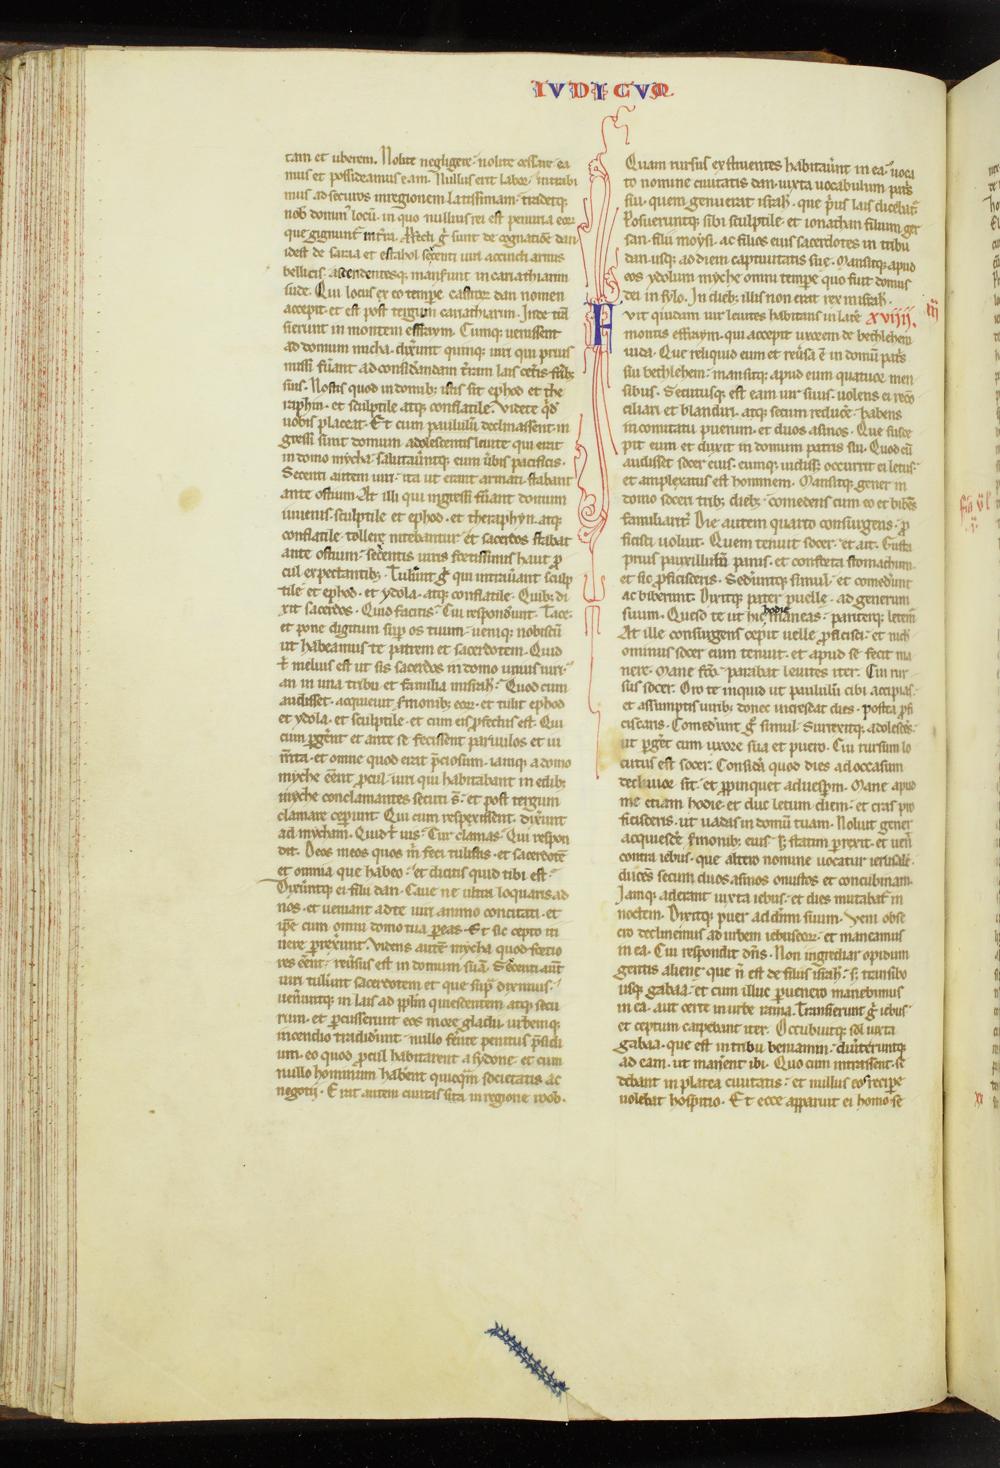 IVDICVM
tam et uberem. Nolite negligere. nolite cessare. ea
mus et possideamus eam. Nullus erit labor. intrabi
mus ad securos in regionem latissimam. tradetq;
nob dominus locū. in quo nullius rei est penuria eoꝝ
que gignunt in terra. Profecti g̊ sunt de cognatiōe dan
idest de saraa et estahol sexcenti uiri accincti armis
bellicis. ascendentesq; manserunt in cariathiarim
iude. Qui locus ex eo tempore castroꝝ dan nomen
accepit. et est post tergum cariathiarim. Inde trā
sierunt in montem effraym. Cumq; uenissent
ad domum micha. dixerunt quinq; uiri qui prius
missi fuerant ad considerandam terram lais ceteris frīb;
suis. Nostis quod in domib; istis sit ephod et the
raphin. et sculptile atq; conflatile. videte qd
uobis placeat. Et cum paululū declinassent. in
gressi sunt domum adolescentis leuite qui erat
in domo mycha. salutaueruntq; eum uerbis pacificis.
Sexcenti autem uiri. ita ut erant armati. stabant
ante ostium. At illi qui ingressi fuerant domum
iuuenis. sculptile et ephod. et theraphyn. atq;
conflatile. tollere nitebantur. et sacerdos stabat
ante ostium. sexcentis uiris fortissimis haut p
cul expectantib;. Tulerunt g̊ qui intrauerant sculp
tile et ephod. et ydola. atq; conflatile. Quib; di
xit sacerdos. Quid facitis. Cui responderunt. Tace.
et pone digitum super os tuum. ueniq; nobiscū
ut habeamus te patrem et sacerdotem. Quid
t̄ melius est ut sis sacerdos in domo unius uiri.
an in una tribu et familia in israel. Quod cum
audisset. acquieuit sermonib; eoꝝ. et tulit ephod
et ydola. et sculptile. et cum eis profectus est. Qui
cum pergerent et ante se fecissent paruulos et iu
menta. et omne quod erat preciosum. iamq; a domo
myche essent procul. uiri qui habitabant in edib;
myche conclamantes secuti s̄. et post tergum
clamare ceperunt. Qui cum respexissent. dixerunt
ad mycham. Quid t̄ uis. Cur clamas. Qui respon
dit. Deos meos quos m̄ feci tulistis. et sacerdotē
et omnia que habeo. et dicitis quid tibi est.
Dixeruntq; ei filii dan. Caue ne ultra loquaris ad
nos. et ueniant ad te uiri animo concitati. et
ipse cum omni domo tua pereas. Et sic cepto iti
nere perrexerunt. Videns autē mycha quod fortio
res essent. reuersus est in domum suā. Sexcenti aūt
uiri tulerunt sacerdotem et que supra diximus.
ueneruntq; in lais ad pplm quiescentem atq; secu
rum. et percusserunt eos in ore gladii. urbemq;
incendio tradiderunt. nullo ferente penitus presidi
um. eo quod procul habitarent a sydone. et cum
nullo hominum haberent quicquam societatis ac
negotii. Erat autem ciuitas sita in regione roob.
Quam rursus exstruentes habitauerunt in ea. uoca
to nomine ciuitatis dan. iuxta uocabulum patris
sui. quem genuerat israel. que prius lais dicebatur.
Posueruntq; sibi sculptile. et ionathan filium ger
san. filii moysi. ac filios eius sacerdotes in tribu
dan. usq; ad diem captiuitatis sue. Mansitq; apud
eos ydolum myche omni tempore quo fuit domus
dei in sylo. In dieb; illis non erat rex in israel.
Fuit quidam uir leuites habitans in latere xviiii.
montis effraym. qui accepit uxorem de bethleem
iuda. Que reliquid eum et reuersa ē in domū patris
sui bethlehem. mansitq; apud eum quatuor men
sibus. Secutusq; est eam uir suus. uolens ei reco
ciliari et blandiri. atq; secum reducere. habens
in comitatu puerum. et duos asinos. Que susce
pit eum et duxit in domum patris sui. Quod cū
audisset socer eius. eumq; uidisset. occurrit ei letus.
et amplexatus est hominem. Mansitq; gener in
domo soceri trib; dieb;. comedens cum eo et bibēs
familiariter. Die autem quarto consurgens. p
ficisci uoluit. Quem tenuit socer. et ait. Gusta
prius pauxillulū panis. et conforta stomachum.
et sic proficisceris. Sederuntq; simul. et comederunt
ac biberunt. Dixitq; pater puelle. ad generum
suum. Queso te ut hic hodie maneas. pariterq; letem
At ille consurgens cepit uelle proficisci. et nich
ominus socer eum tenuit. et apud se fecit ma
nere. Mane facto. parabat leuites iter. Cui rur
sus socer. Oro te inquid ut paululū cibi accipias.
et assumptis uirib; donec increscat dies. postea profi
ciscaris. Comederunt g̊ simul. Surrexitq; adolescēs.
ut pergeret cum uxore sua et puero. Cui rursum lo
cutus est socer. Considera quod dies ad occasum
decliuior sit. et propinquet ad uesperum. Mane apud
me etiam hodie. et duc letum diem. et cras pro
ficisceris. ut uadas in domū tuam. Noluit gener
acquiescere sermonib; eius. s; statim perrexit. et uenit
contra iebus. que altero nomine uocatur ierusalē.
ducens secum duos asinos onustos et concubinam.
Iamq; aderant iuxta iebus. et dies mutabatur in
noctem. Dixitq; puer ad dominum suum. Veni obse
cro declinemus ad urbem iebuseoꝝ. et maneamus
in ea. Cui respondit dn̄s. Non ingrediar opidum
gentis aliene que n̄ est de filiis israel. s; transibo
usq; gabaa. et cum illuc peruenero manebimus
in ea. aut certe in urbe rama. Transierunt g̊ iebus
et ceptum carpebant iter. Occubuitq; sol iuxta
gabaa. que est in tribu beniamin. diuerteruntq;
ad eam. ut manerent ibi. Quo cum intrassent. se
debant in platea ciuitatis. et nullus eos recipere
uolebat hospitio. Et ecce apparuit ei homo se